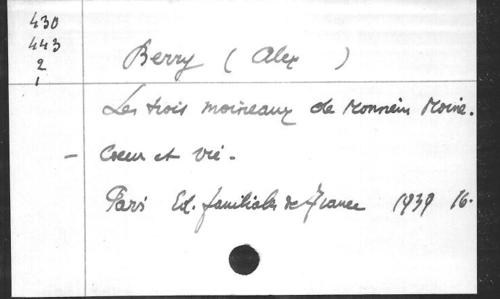 430
443
2
1
Berry (Alex)
Les trois moineaux de Monsieur Moine.
– Coeur et vie.
Paris Ed. familiales de France 1939 16.